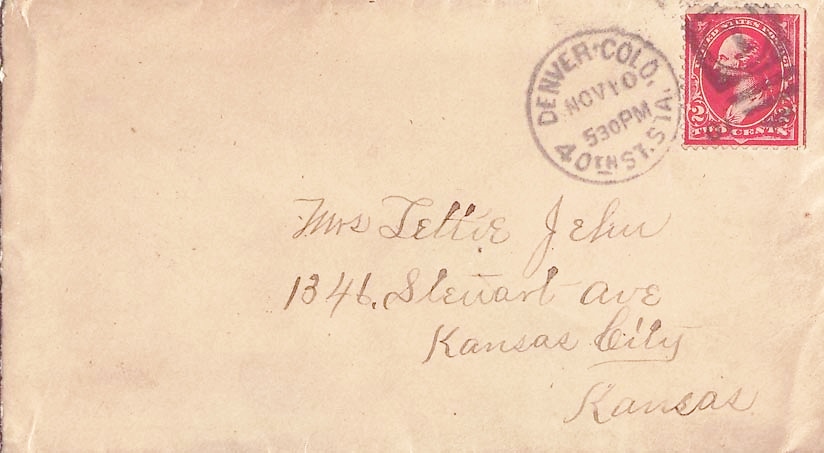 DENVER·COLO.
NOV 10
530 PM
40TH ST. STA.
UNITED STATES POSTAGE
2 2
TWO CENTS
Mrs Lettie John
1346. Stewart Ave
Kansas City
Kansas